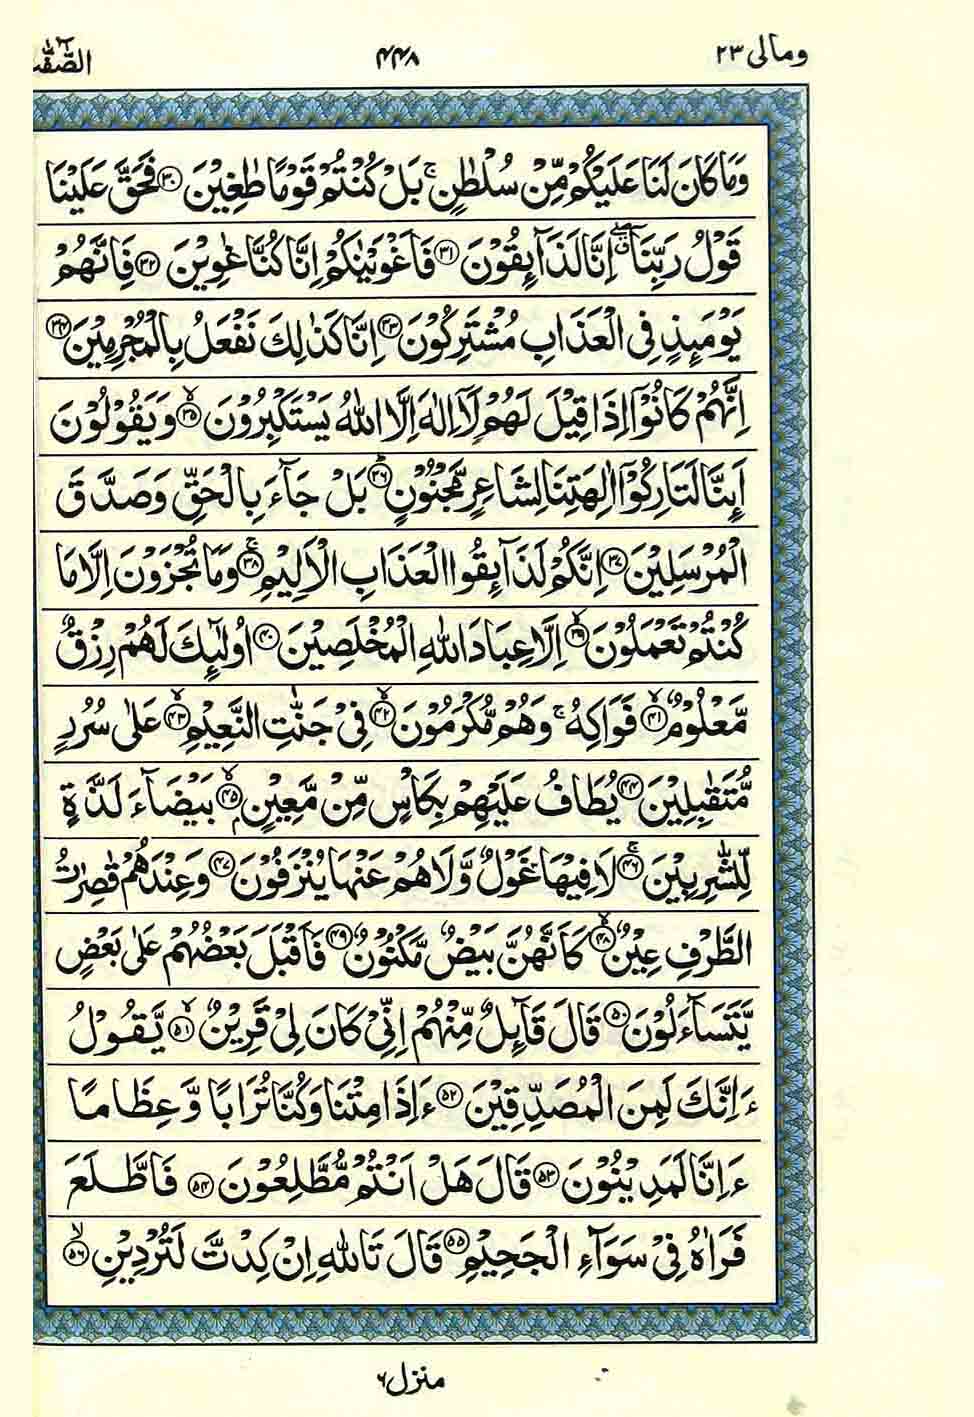 ومالی ۲۳ ۴۴۸ الصّٰٓفّٰت
وَمَا كَانَ لَنَا عَلَيْكُمْ مِّنْ سُلْطٰنٍ ۚ بَلْ كُنْتُمْ قَوْمًا طٰغِيْنَ ۳۰ فَحَقَّ عَلَيْنَا
قَوْلُ رَبِّنَآ ۖ اِنَّا لَذَآئِقُوْنَ ۳۱ فَاَغْوَيْنٰكُمْ اِنَّا كُنَّا غٰوِيْنَ ۳۲ فَاِنَّهُمْ
يَوْمَئِذٍ فِي الْعَذَابِ مُشْتَرِكُوْنَ ۳۳ اِنَّا كَذٰلِكَ نَفْعَلُ بِالْمُجْرِمِيْنَ ۳۴
اِنَّهُمْ كَانُوْٓا اِذَا قِيْلَ لَهُمْ لَآ اِلٰهَ اِلَّا اللّٰهُ يَسْتَكْبِرُوْنَ ۙ۳۵ وَيَقُوْلُوْنَ
اَئِنَّا لَتَارِكُوْٓا اٰلِهَتِنَا لِشَاعِرٍ مَّجْنُوْنٍ ۭ۳۶ بَلْ جَآءَ بِالْحَقِّ وَصَدَّقَ
الْمُرْسَلِيْنَ ۳۷ اِنَّكُمْ لَذَآئِقُوا الْعَذَابِ الْاَلِيْمِ ۚ۳۸ وَمَا تُجْزَوْنَ اِلَّا مَا
كُنْتُمْ تَعْمَلُوْنَ ۙ۳۹ اِلَّا عِبَادَ اللّٰهِ الْمُخْلَصِيْنَ ۴۰ اُولٰٓئِكَ لَهُمْ رِزْقٌ
مَّعْلُوْمٌ ۙ۴۱ فَوَاكِهُ ۚ وَهُمْ مُّكْرَمُوْنَ ۙ۴۲ فِيْ جَنّٰتِ النَّعِيْمِ ۙ۴۳ عَلٰى سُرُرٍ
مُّتَقٰبِلِيْنَ ۴۴ يُطَافُ عَلَيْهِمْ بِكَاْسٍ مِّنْ مَّعِيْنٍۭ ۙ۴۵ بَيْضَآءَ لَذَّةٍ
لِّلشّٰرِبِيْنَ ۚ۴۶ لَا فِيْهَا غَوْلٌ وَّلَا هُمْ عَنْهَا يُنْزَفُوْنَ ۴۷ وَعِنْدَهُمْ قٰصِرٰتُ
الطَّرْفِ عِيْنٌ ۙ۴۸ كَاَنَّهُنَّ بَيْضٌ مَّكْنُوْنٌ ۴۹ فَاَقْبَلَ بَعْضُهُمْ عَلٰى بَعْضٍ
يَّتَسَآءَلُوْنَ ۵۰ قَالَ قَآئِلٌ مِّنْهُمْ اِنِّيْ كَانَ لِيْ قَرِيْنٌ ۙ۵۱ يَّقُوْلُ
ءَاِنَّكَ لَمِنَ الْمُصَدِّقِيْنَ ۵۲ ءَاِذَا مِتْنَا وَكُنَّا تُرَابًا وَّعِظَامًا
ءَاِنَّا لَمَدِيْنُوْنَ ۵۳ قَالَ هَلْ اَنْتُمْ مُّطَّلِعُوْنَ ۵۴ فَاطَّلَعَ
فَرَاٰهُ فِيْ سَوَآءِ الْجَحِيْمِ ۵۵ قَالَ تَاللّٰهِ اِنْ كِدْتَّ لَتُرْدِيْنِ ۙ۵۶
منزل ۶